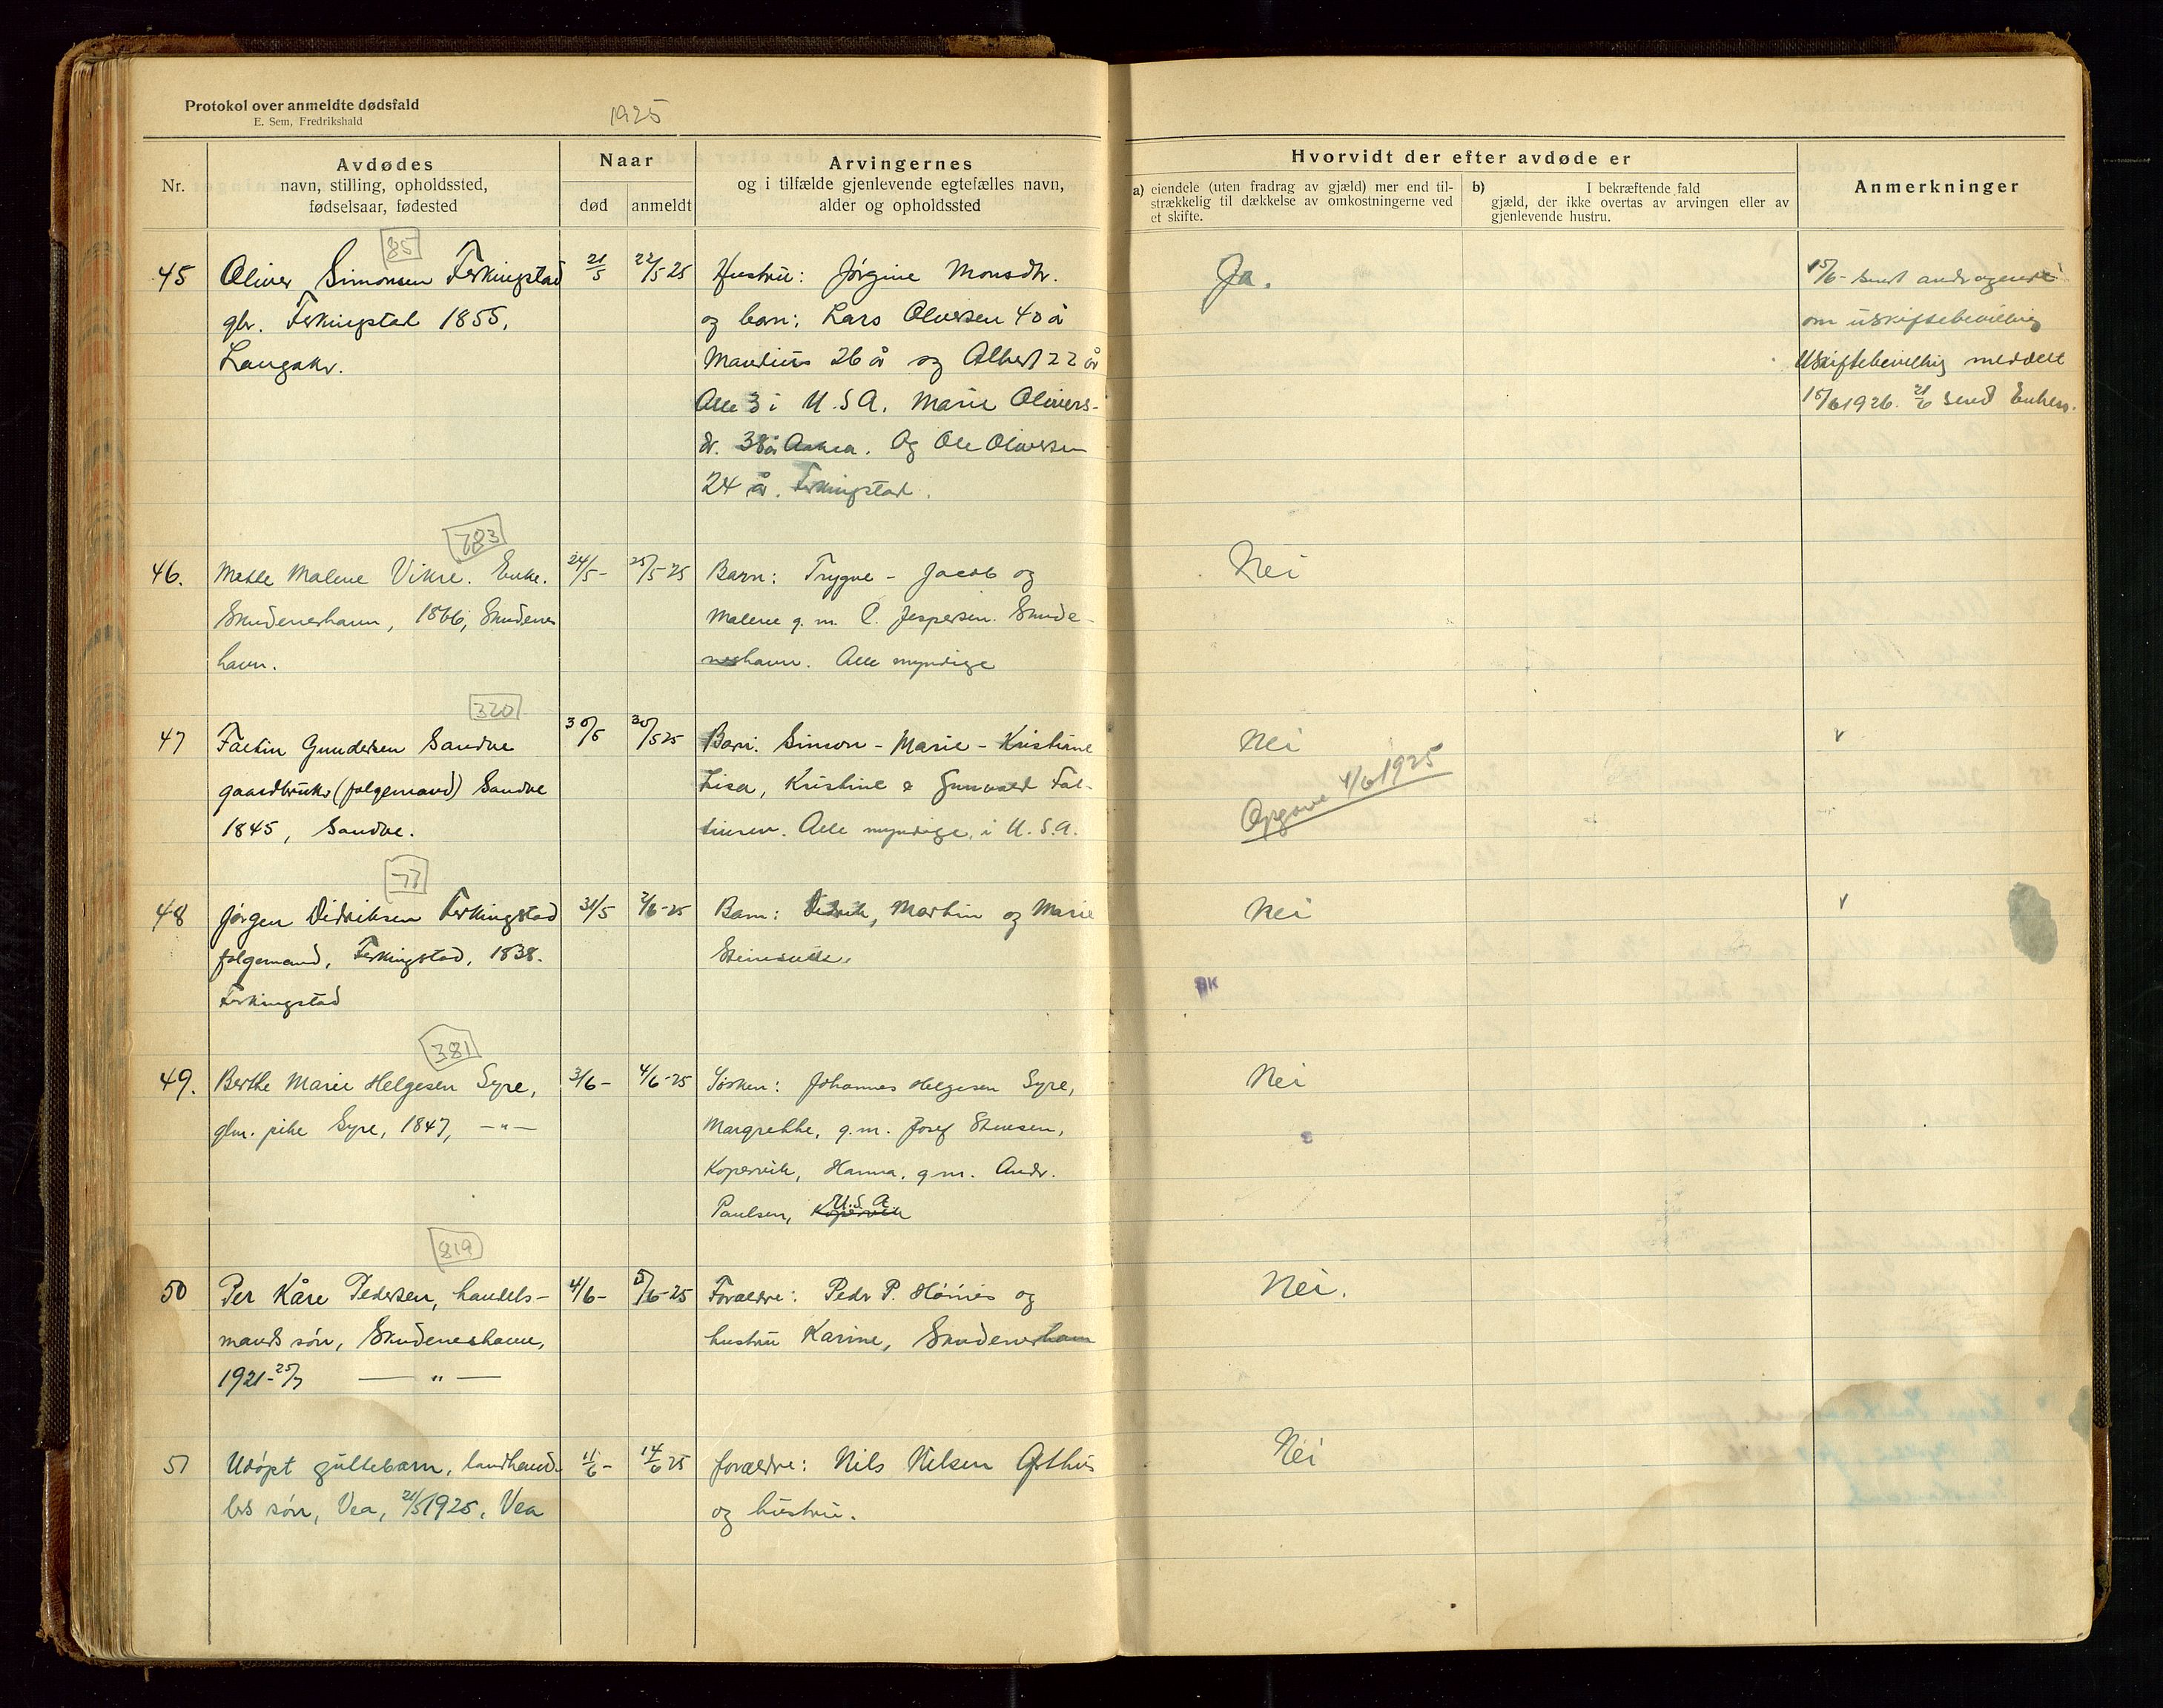 Protokol over anmeldte dødsfald
E. Sem, Fredrikshald
1925
Nr.
Avdødes
navn, stilling, opholdssted,
fødselsaar, fødested
Naar
død
anmeldt
Arvingernes
og i tilfælde gjenlevende egtefælles navn,
alder og opholdssted
Hvorvidt der efter avdøde er
a) eiendele (uten fradrag av gjæld) mer end til-
strækkelig til dækkelse av omkostningerne ved
et skifte.
b) I bekræftende fald
gjæld, der ikke overtas av arvingen eller av
gjenlevende hustru.
Anmerkninger
85
45 Oliver Simonsen Ferkingstad 21/5 22/5-25 Hustru: Jørgine Monsdtr. Ja.
gbr. Ferkingstad 1855, og barn: Lars Olversen 40 å
Langåkr. Mandius 26 å og Albert 22 år
Alle 3 i U.S.A. Marie Olivers-
dr. 38 år Aakra. Og Ole Oliversen
24 år. Ferkingstad.
15/6- sendt andragende
om uskiftebevilling
Uskiftebevilling meddelt
15/6 1926. 21/6 send Enken.
783
46. Mette Malene Vikre. Enke. 24/5- 25/5-25 Barn: Trygve - Jacob og Nei
Skudeneshavn, 1866, Skudenes Malene g. m. C. Jespersen. Skude-
havn. neshavn. Alle myndige
320
47 Faltin Gundersen Sandve 30/5 30/5 25 Barn: Simon - Marie - Kristiane Nei v
gaardbruker (følgemand) Sandve Lisa, Kristine & Gunvald Fal-
1845, Sandve. tinsen. Alle myndige, i U.S.A.
Opgave 4/6 1925
77
48 Jørgen Didriksen Ferkingstad 31/5 2/6-25 Barn: Didrik, Martin og Marie Nei v
følgemand, Ferkingstad, 1838. Steinsvik.
Ferkingstad
381
49. Berthe Marie Helgesen Syre, 3/6- 4/6-25 Søsken: Johannes Helgesen Syre, Nei
glm. pike Syre, 1847, —"— Margrethe, g.m. Josef Stensen,
Kopervik, Hanna, g m. Andr.
U.S.A
Paulsen, Kopervik
819
50 Per Kåre Pedersen, handels- 4/6- 5/6-25 Forældre: Pedr P. Høines og Nei.
mands søn, Skudeneshavn, hustru Karine, Skudeneshavn
1921-25/7 — " —
51 Udøpt guttebarn, landhand- 11/6- 14/6 25 forældre: Nils Nilsen Østhus Nei
lers søn, Vea, 21/5 1925, Vea og hustru.